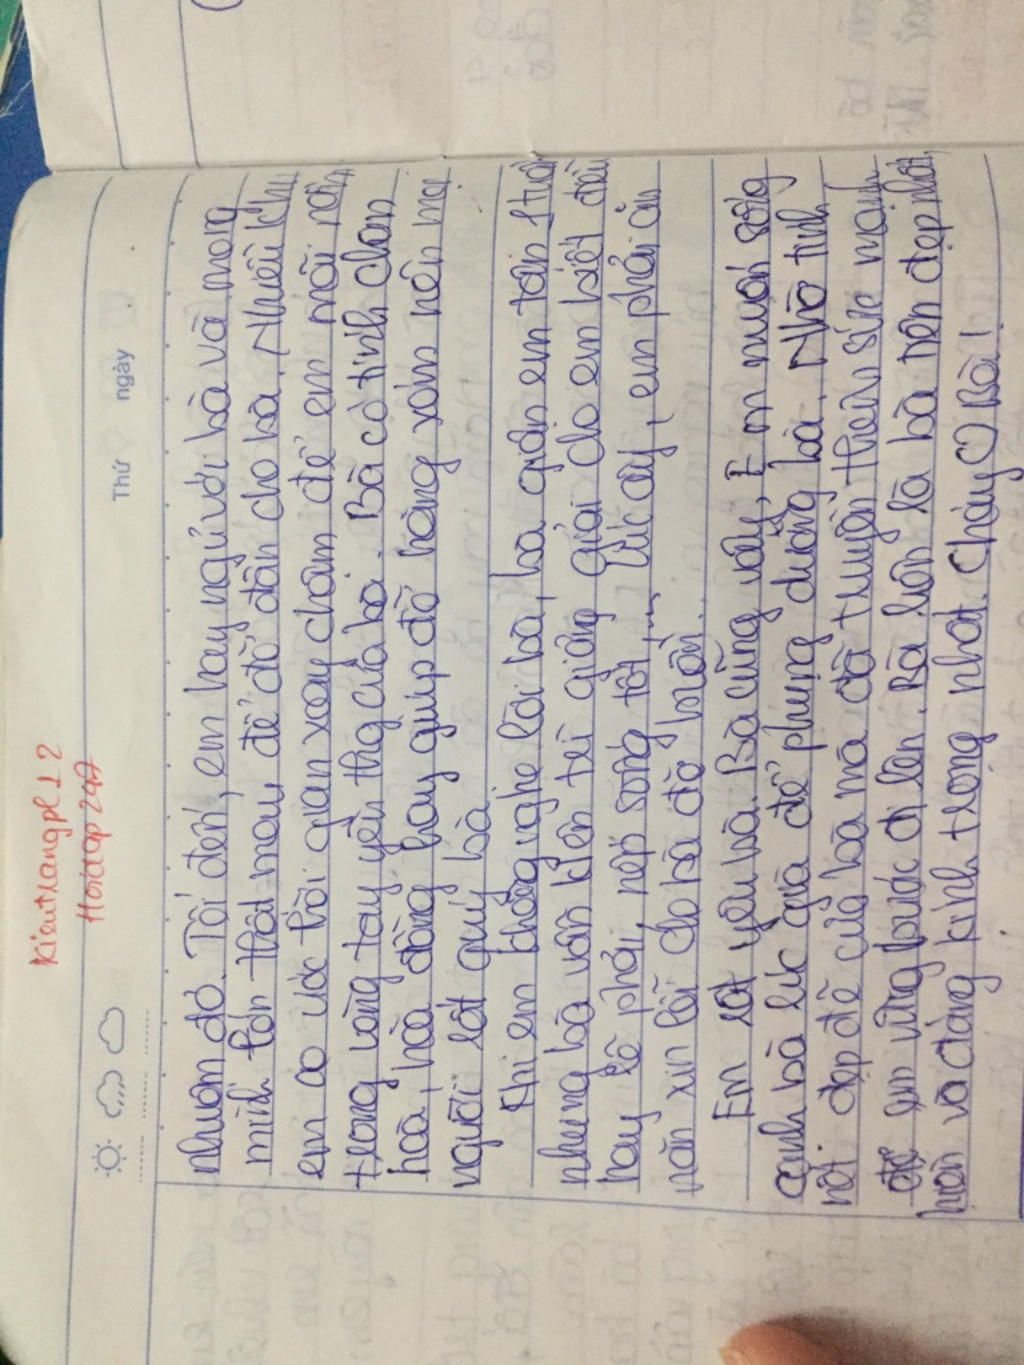 Kieutrangpl12
Hoidap247
Thứ ngày
nhuộm đỏ. Tối đến, em hay ngủ với bà và mong
mình lớn thật mau để đỡ đần cho bà. Nhiều khi
em ao ước thời gian xoay chậm để em mãi nằm
trong vòng tay yêu thg của bà. Bà có tính chan
hoà, hoà đồng hay giúp đỡ hàng xóm nên mọi
người rất quý bà.
Khi em không nghe lời bà, bà giận em
nhưng bà vẫn kiên trì giảng giải cho em biết đâu
hay lẽ phải, nếp sống tốt,... Lúc ấy, em phải ăn
năn xin lỗi cho bà đỡ buồn.
Em rất yêu bà. Bà cũng vậy, Em muốn sống
cạnh bà lúc già để phụng dưỡng bà. Nhờ tình
nét đẹp đẽ của bà mà đã thuận thêm sức mạnh
để em vững bước đi lên. Bà luôn là bà tiên đẹp nhất,
hiền và đáng kính trọng nhất. Cháu ♡ Bà!